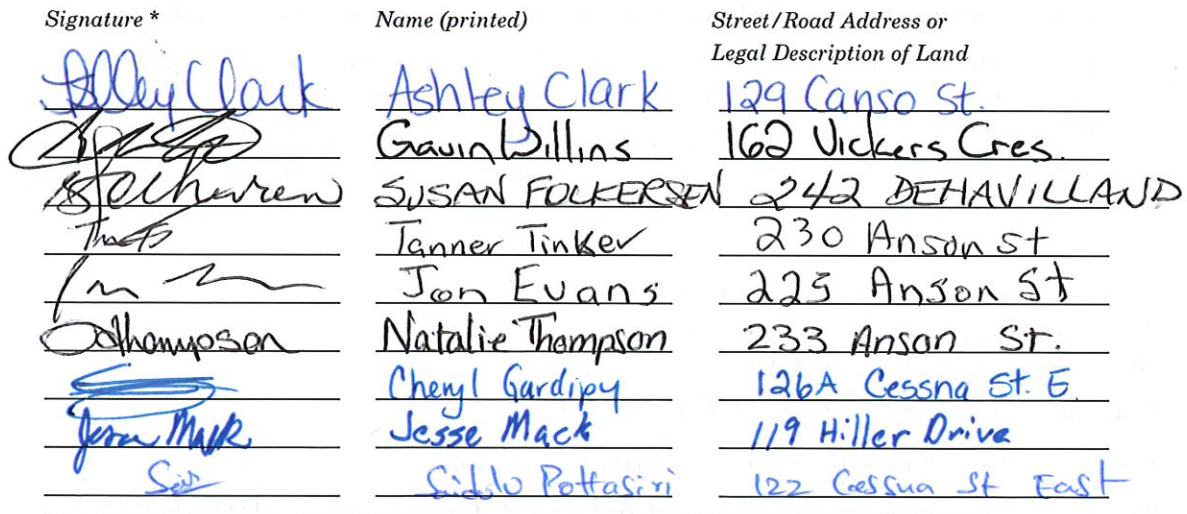 Signature * Name (printed) Street/Road Address or
Legal Description of Land
Ashley Clark Ashley Clark 129 Canso St.
Gavin Willins 162 Vickers Cres.
SUSAN FOLKERSEN 242 DEHAVILLAND
Tanner Tinker 230 Anson St
Jon Evans 225 Anson St
Thompson Natalie Thompson 233 Anson St.
Cheryl Gardipy 126A Cessna St. E
Jesse Mack Jesse Mack 119 Hiller Drive
Pottasiri 122 Cessna St East